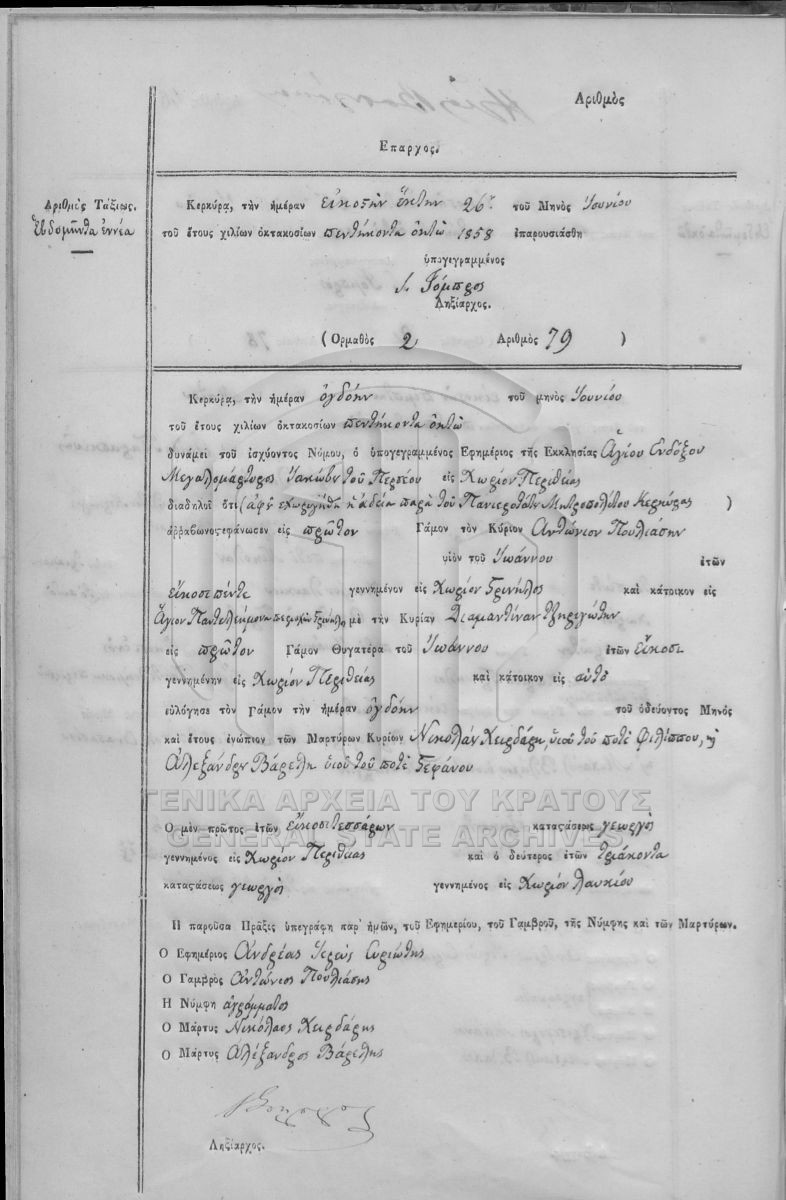 Αριθμὸς
Επαρχος.
Αριθμὸς Τάξεως.
Ἑβδομῆντα ἐννέα
Κερκύρα, τὴν ἡμέραν εἰκοστὴν ἕκτην 26 τοῦ Μηνὸς Ἰουνίου
τοῦ ἔτους χιλίων ὀκτακοσίων πεντήκοντα ὀκτὼ 1858 ἐπαρουσιάσθη
ὑπογεγραμμένος
Γόμπρος
Ληξίαρχος.
(Ορμαθὸς 2 Αριθμὸς 79 )
Κερκύρα, τὴν ἡμέραν ὀγδόην τοῦ μηνὸς Ἰουνίου
τοῦ ἔτους χιλίων ὀκτακοσίων πεντήκοντα ὀκτὼ
δυνάμει τοῦ ἰσχύοντος Νόμου, ὁ ὑπογεγραμμένος Εφημέριος τῆς Εκκλησίας Ἁγίου Ενδόξου
Μεγαλομάρτυρος Ἰακώβου τοῦ Περσέου εἰς Χωρίον Περιθείας
διαδηλοῖ ὅτι (ἀφ' οὗ ἐχωρηγήθη ἡ ἄδεια παρὰ τοῦ Πανιεροτάτου Μητροπολίτου Κερκύρας )
ἀῤῥαβωνοςεφάνωσεν εἰς πρῶτον Γάμον τὸν Κύριον Ἀντώνιον Πουλιάσην
υἱὸν τοῦ Ἰωάννου ἐτῶν
εἴκοσι πέντε γεννημένον εἰς Χωρίον Στρινήλας καὶ κάτοικον εἰς
Ἅγιον Παντελεήμονα περιοχῶν Στρινήλα μὲ τὴν Κυρίαν Διαμαντίναν Τζηριγώτην
εἰς πρῶτον Γάμον Θυγατέρα τοῦ Ἰωάννου ἐτῶν εἴκοσι
γεννημένην εἰς Χωρίον Περιθείας καὶ κάτοικον εἰς αὐτὸ
εὐλόγησε τὸν Γάμον τὴν ἡμέραν ὀγδόην τοῦ ὁδεύοντος Μηνὸς
καὶ ἔτους ἐνώπιον τῶν Μαρτύρων Κυρίων Νικολάου Χειρδάρη υἱοῦ τοῦ ποτὲ Φιλίππου, καὶ
Ἀλεξάνδρου Βάρελη υἱοῦ τοῦ ποτὲ Στεφάνου
Ο μὲν πρῶτος ἐτῶν εἴκοσι τεσσάρων καταςάσεως γεωργὸς
γεννημένος εἰς Χωρίον Περιθείας καὶ ὁ δεύτερος ἐτῶν τριάκοντα
καταςάσεως γεωργὸς γεννημένος εἰς Χωρίον Λαυκίου
Η παροῦσα Πρᾶξις ὑπεγράφη παρ' ἡμῶν, τοῦ Εφημερίου, τοῦ Γαμβροῦ, τῆς Νύμφης καὶ τῶν Μαρτύρων.
Ο Εφημέριος Ἀνδρέας Ἱερεὺς Συριώτης
Ο Γαμβρὸς Ἀντώνιος Πουλιάσης
Η Νύμφη ἀγράμματος
Ο Μάρτυς Νικόλαος Χειρδάρης
Ο Μάρτυς Ἀλέξανδρος Βάρελης
Ληξίαρχος.
ΓΕΝΙΚΑ ΑΡΧΕΙΑ ΤΟΥ ΚΡΑΤΟΥΣ
GENERAL STATE ARCHIVES